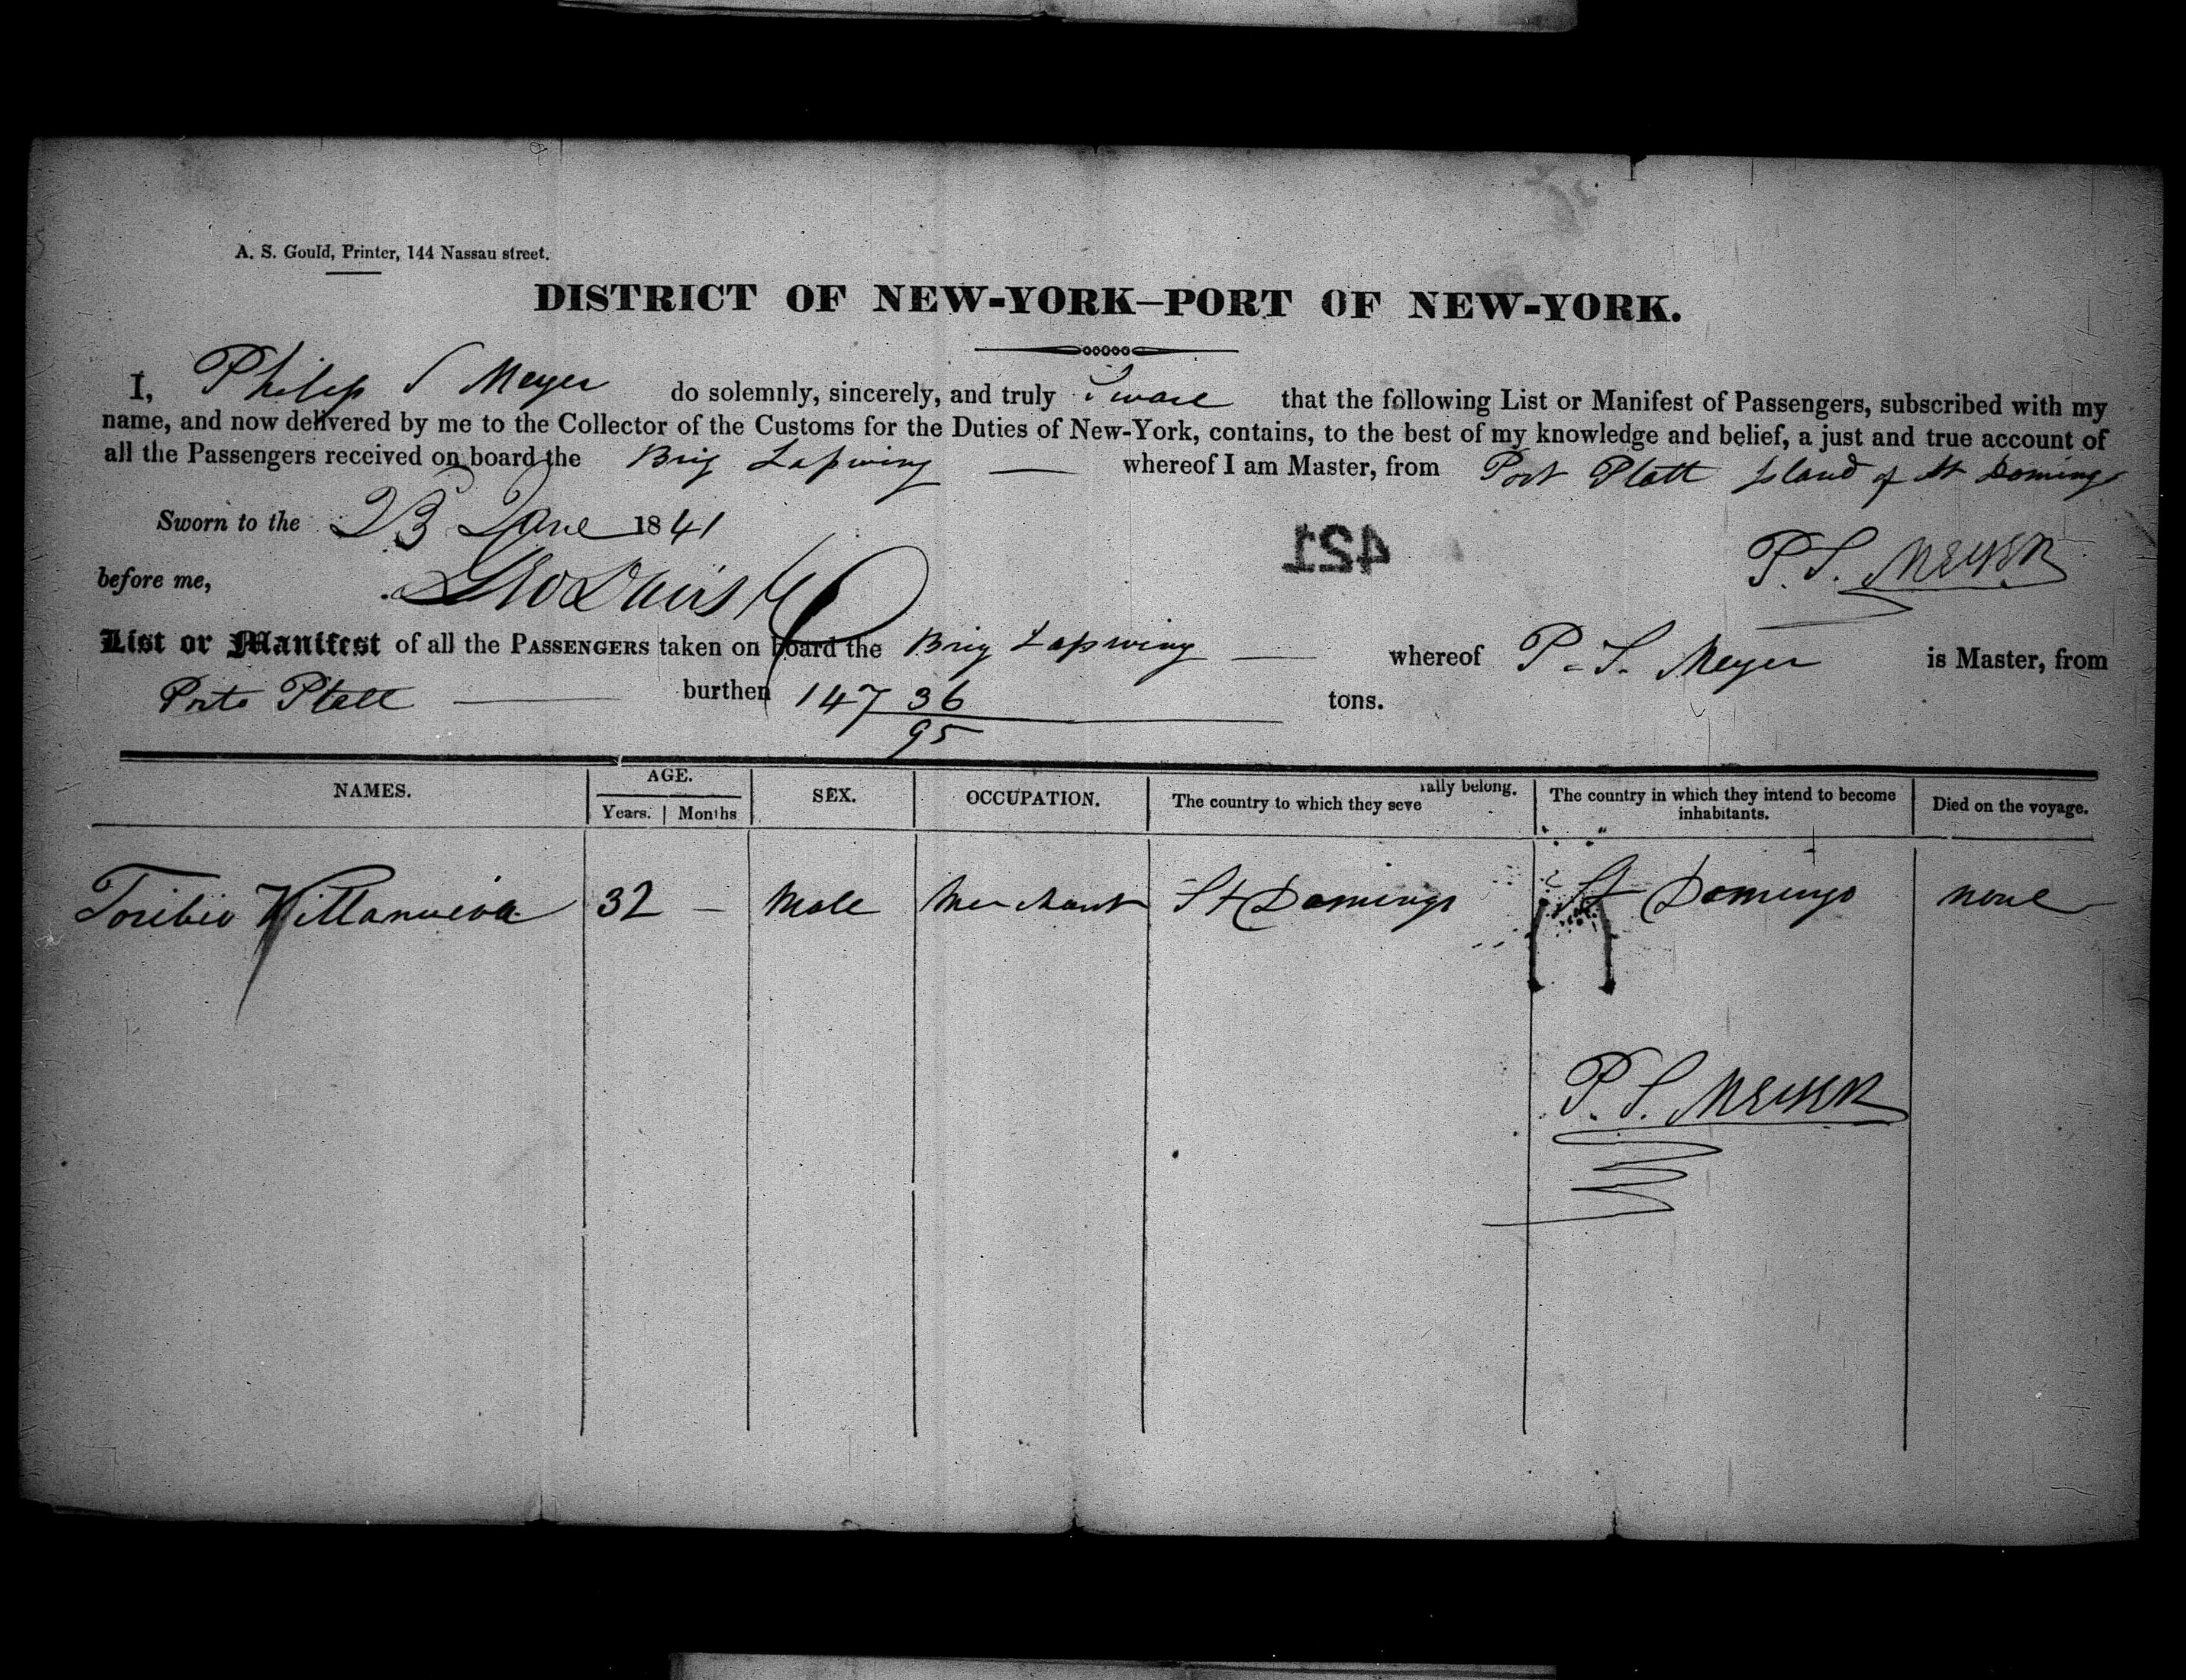 A. S. Gould, Printer, 144 Nassau street.
DISTRICT OF NEW-YORK—PORT OF NEW-YORK.
I, Philip S Meyer do solemnly, sincerely, and truly Sware that the following List or Manifest of Passengers, subscribed with my
name, and now delivered by me to the Collector of the Customs for the Duties of New-York, contains, to the best of my knowledge and belief, a just and true account of
all the Passengers received on board the Brig Lapwing — whereof I am Master, from Port Platt Island of St Domingo
Sworn to the 23 June 1841
421
P. S. Meyer
before me, Geo Davis
List or Manifest of all the PASSENGERS taken on board the Brig Lapwing — whereof P. S. Meyer is Master, from
Porto Platt — burthen 147 36/95 tons.
NAMES. AGE. Years. Months SEX. OCCUPATION. The country to which they severally belong. The country in which they intend to become inhabitants. Died on the voyage.
Toribio Villanueva 32 — Male Merchant St Domingo St Domingo none
P. S. Meyer